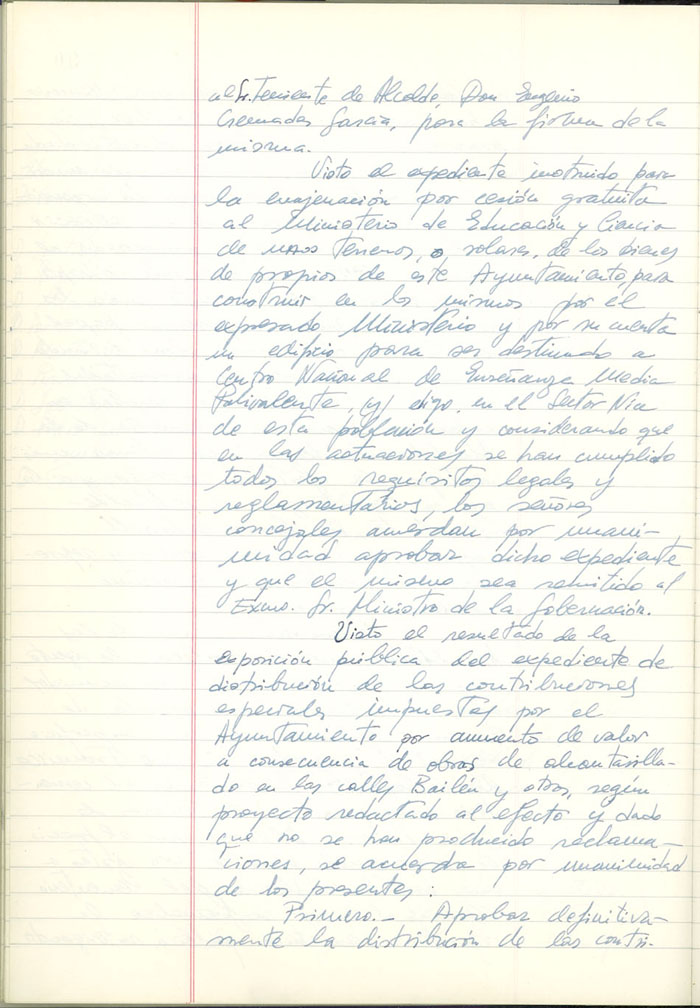 al Sr. Teniente de Alcalde, Don Eugenio
Cremades García, para la firma de la
misma.
Visto el expediente instruido para
la enajenación por cesión gratuita
al Ministerio de Educación y Ciencia
de unos terrenos, o solares, de los bienes
de propios de este Ayuntamiento, para
construir en los mismos por el
expresado Ministerio y por su cuenta
un edificio para ser destinado a
Centro Nacional de Enseñanza Media
Polivalente, (y) digo, en el Sector
de esta población y considerando que
en las actuaciones se han cumplido
todos los requisitos legales y
reglamentarios, los señores
concejales acuerdan por unani-
midad aprobar dicho expediente
y que el mismo sea remitido al
Excmo. Sr. Ministro de la Gobernación.
Visto el resultado de la
exposición pública del expediente de
distribución de las contribuciones
especiales impuestas por el
Ayuntamiento por aumento de valor
a consecuencia de obras de alcantarilla-
do en las calles Bailén y otras, según
proyecto redactado al efecto y dado
que no se han producido reclama-
ciones, se acuerda por unanimidad
de los presentes:
Primero.- Aprobar definitiva-
mente la distribución de las contri-